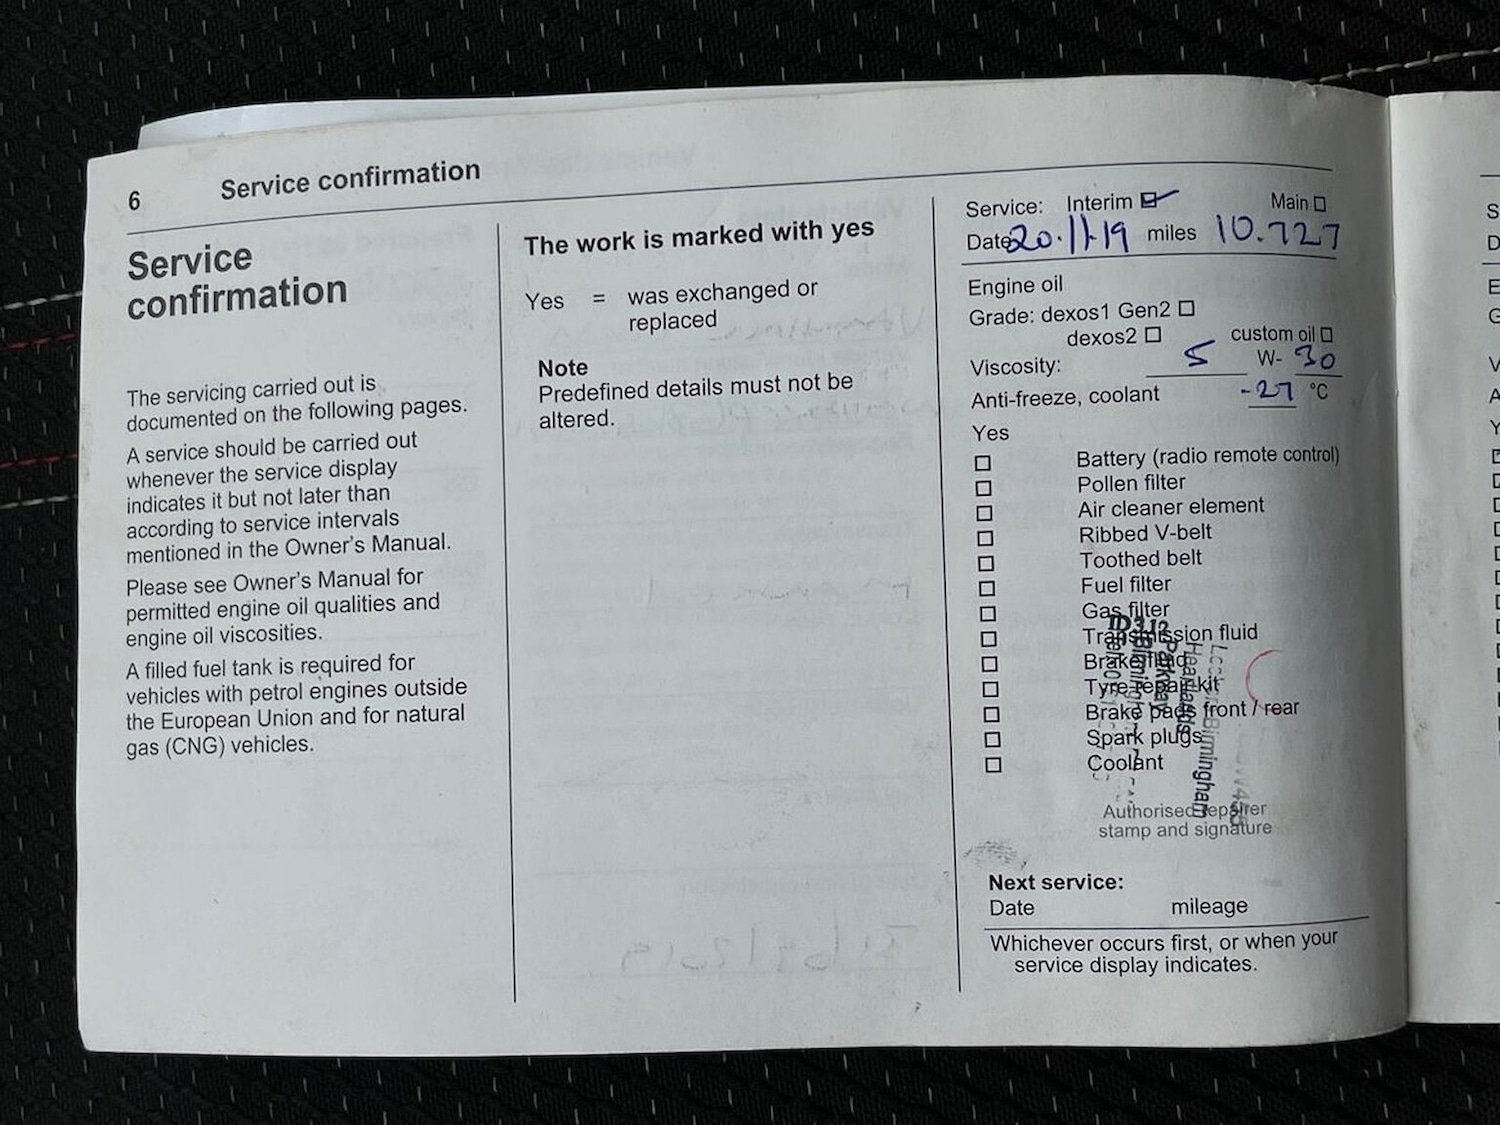 6 Service confirmation
Service
confirmation
The servicing carried out is
documented on the following pages.
A service should be carried out
whenever the service display
indicates it but not later than
according to service intervals
mentioned in the Owner's Manual.
Please see Owner's Manual for
permitted engine oil qualities and
engine oil viscosities.
A filled fuel tank is required for
vehicles with petrol engines outside
the European Union and for natural
gas (CNG) vehicles.
The work is marked with yes
Yes = was exchanged or
replaced
Note
Predefined details must not be
altered.
Service: Interim Main
Date 20.11.19 miles 10.727
Engine oil
Grade: dexos1 Gen2
dexos2 custom oil
Viscosity: 5 W- 30
Anti-freeze, coolant -27 °C
Yes
Battery (radio remote control)
Pollen filter
Air cleaner element
Ribbed V-belt
Toothed belt
Fuel filter
Gas filter
Transmission fluid
Brake fluid
Tyre repair kit
Brake pads front / rear
Spark plugs
Coolant
Birmingham
Heartlands
Parkway
Birmingham
Authorised repairer
stamp and signature
Next service:
Date mileage
Whichever occurs first, or when your
service display indicates.